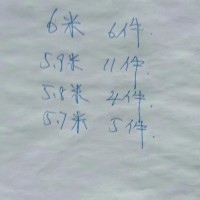 6米 6件.
5.9米 11件.
5.8米 4件.
5.7米 5件.